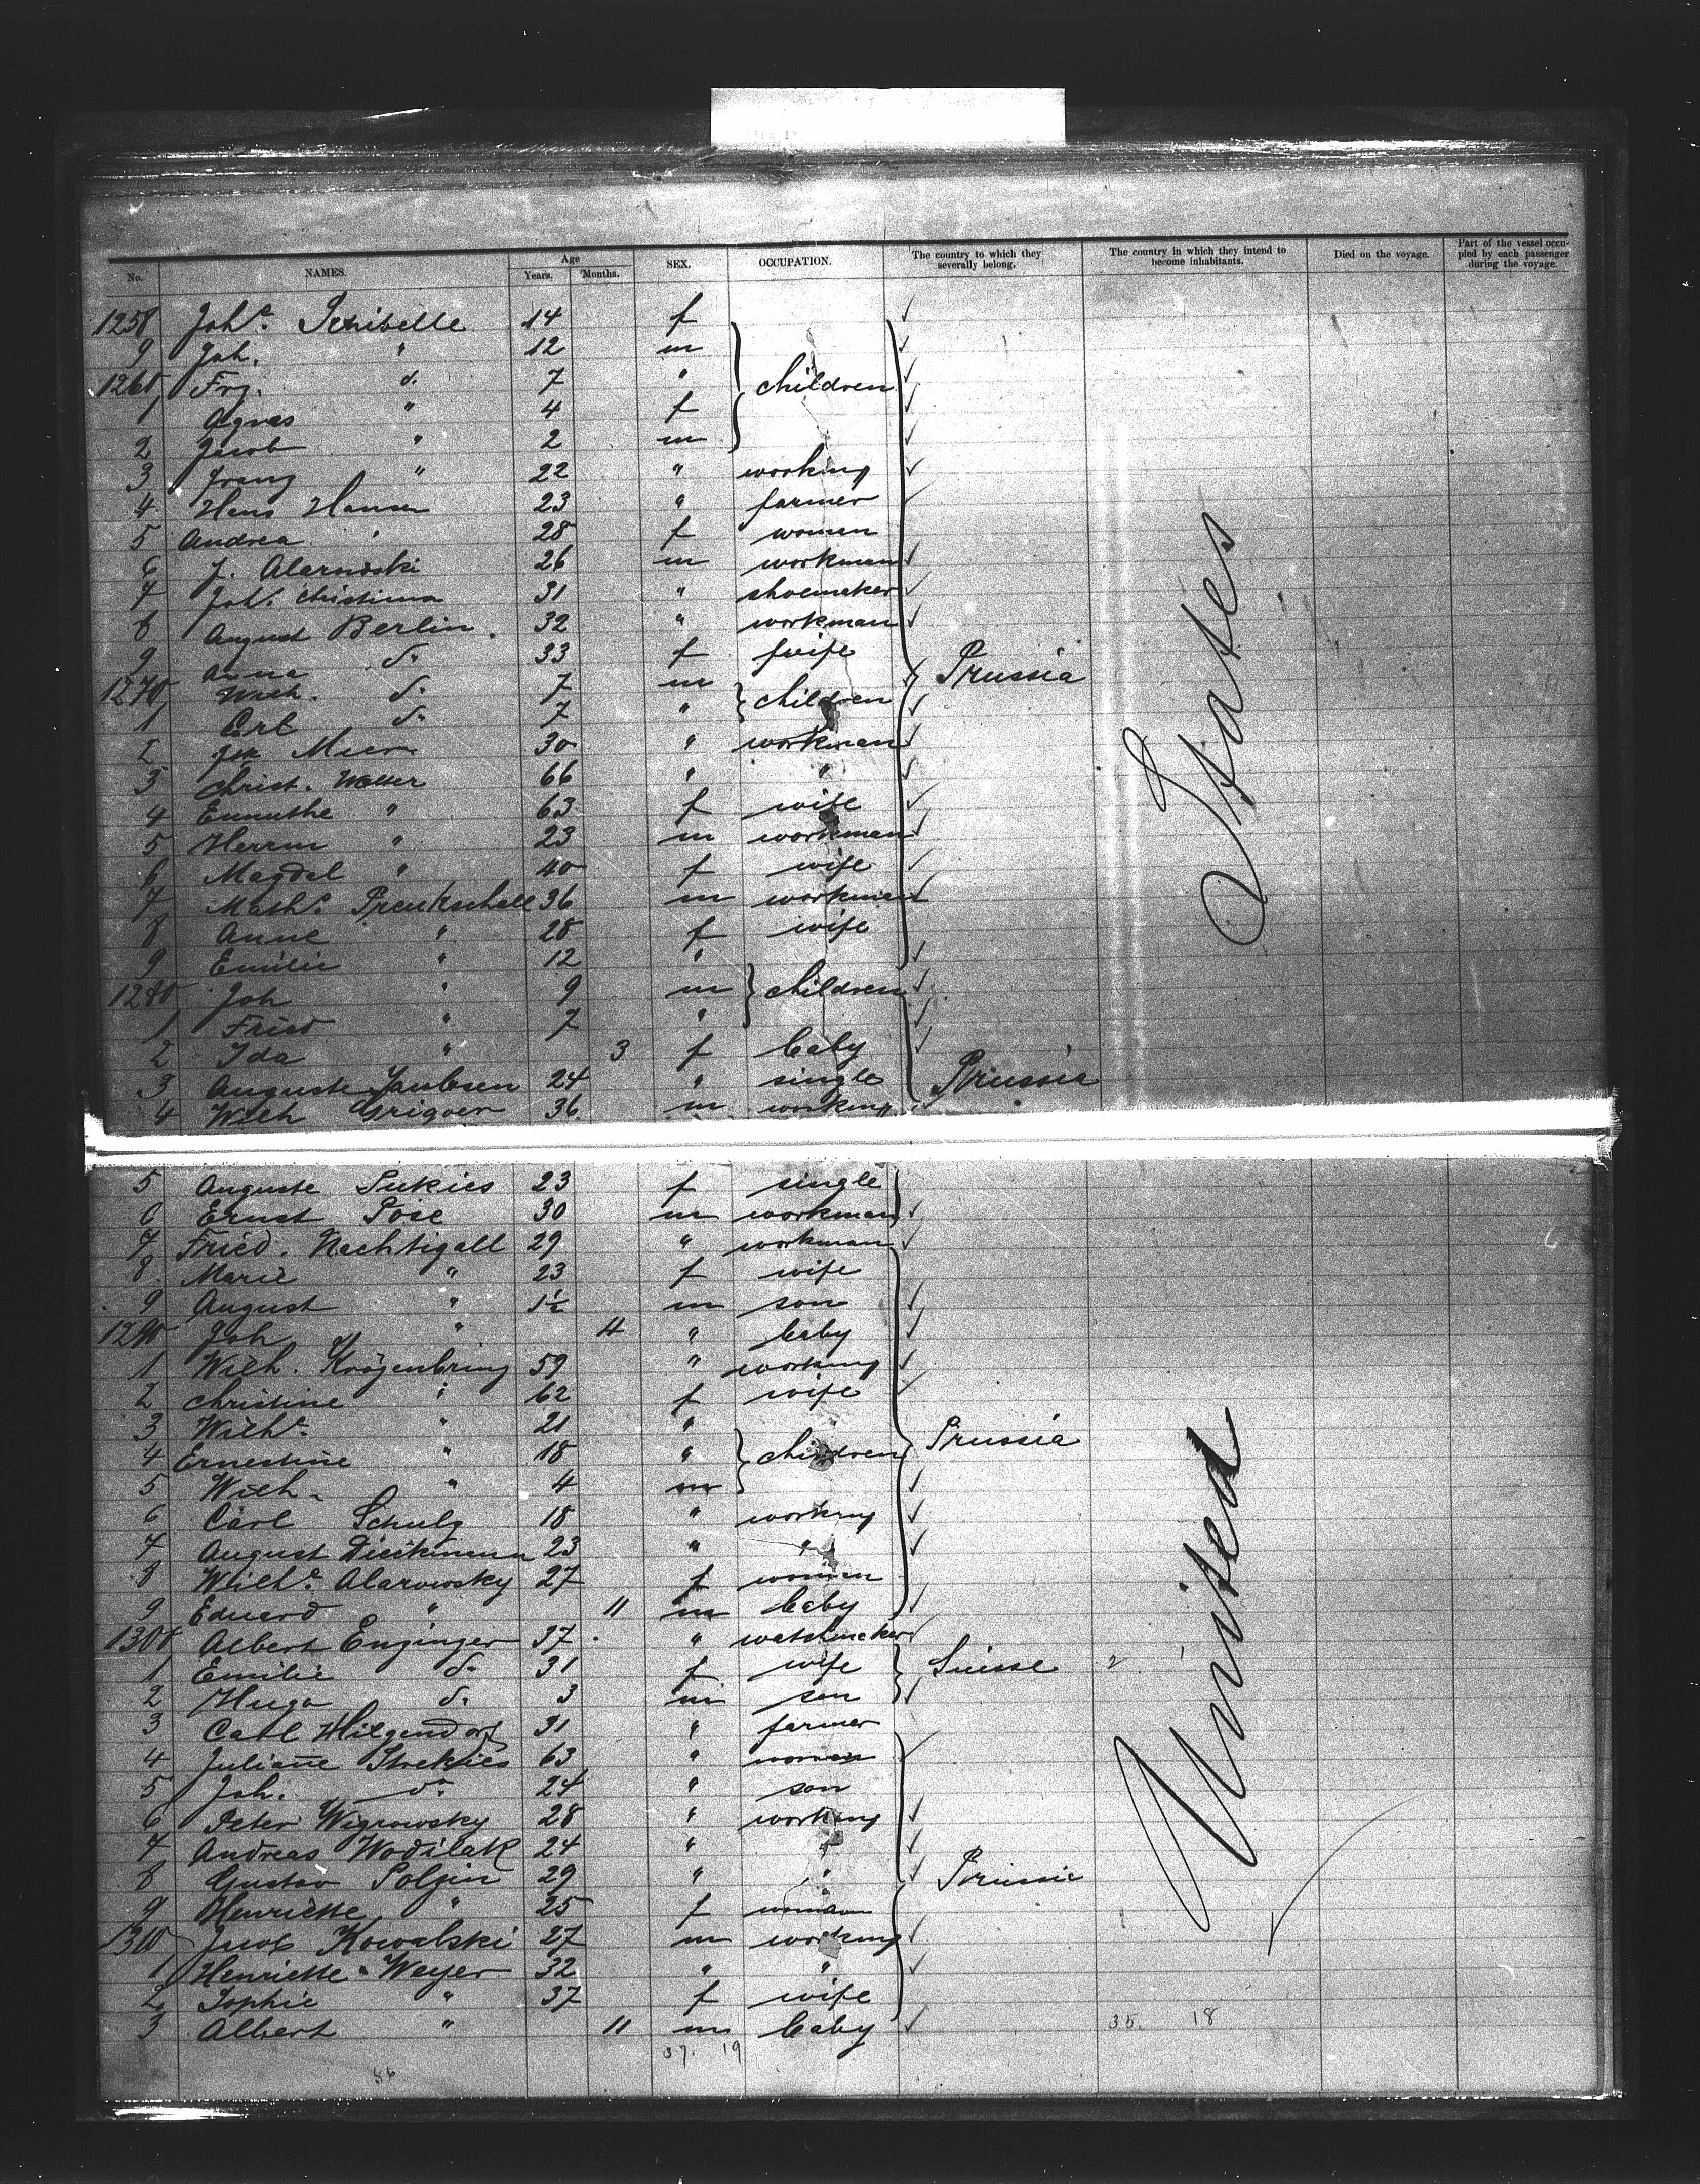 No. NAMES. Age Years. Months. SEX. OCCUPATION. The country to which they severally belong. The country in which they intend to become inhabitants. Died on the voyage. Part of the vessel occupied by each passenger during the voyage.
1258 Johe. 14 f
9 Joh. " 12 m
1260 Frz. d. 7 " children
1 Agnes " 4 f
2 Jacob " 2 m
3 Franz " 22 " working
4 Hans Hansen 23 " farmer
5 Andrea " 28 f women
6 J. Alarowski 26 m workman
7 Joh. Christima 31 " shoemaker
8 August Berlin. 32 " workman
9 Anna do 33 f wife Prussia
1270 Wilh. do 7 m children
1 Carl do 7 "
2 30 " workman
3 Christ. Walter 66 " "
4 " 63 f wife
5 Herrm " 23 m workman
6 Magdal " 40 f wife
7 Mathe. Preukschell 36 m workman
8 Anne " 28 f wife
9 Emilie " 12 "
1280 Joh " 9 m children
1 Fried " 7 "
2 Ida " 3 f baby
3 Auguste Jacobsen 24 " single Prussia
4 Wilh Grigoer 36 m working
5 Auguste Sukies 23 f single
6 Ernst Pose 30 m workman
7 Fried. Nachtigall 29 " workman
8. Marie " 23 f wife
9 August " 1½ m son
1290 Joh " 4 " baby
1 Wilh. 59 " working
2 Christine " 62 f wife
3 Wilhe. " 21 "
4 Ernestine " 18 " children Prussia
5 Wilh. " 4 m
6 Carl Schulz 18 " working
7 August Dieckmann 23 " "
8 Wilhe. Alarowsky 27 f women
9 Eduard " 11 m baby
1300 Albert Enzinger 37 " watchmaker
1 Emilie do 31 f wife Suisse
2 Hugo do 3 m son
3 Carl Hilgendorf 31 " farmer
4 Juliane Strekies 63 " women
5 Joh. do 24 " son
6 Peter Wigrowsky 28 " working
7 Andreas Wodilak 24 " "
8 Gustav Polzin 29 " " Prussia
9 Henriette " 25 f woman
1310 Jacob Kowalski 27 m working
1 Henriette Weyer 32 " "
2 Sophie " 37 f wife
3 Albert " 11 m baby
United States
35. 18
37. 19